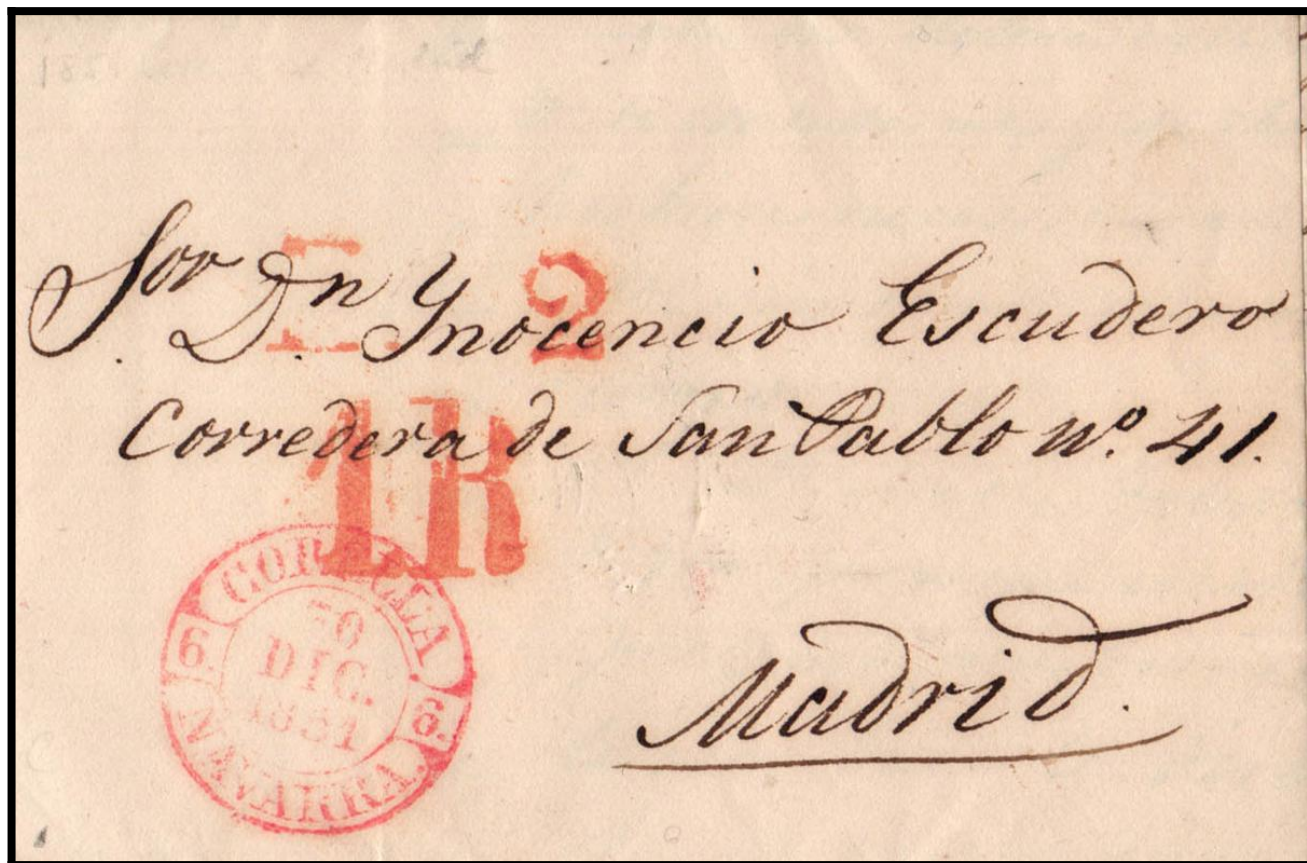 Sor. Dn. Ynocencio Escudero
Corredera de San Pablo nº. 41.
Madrid.
2
1R
CORELLA
30
DIC.
1851
6. 6.
NAVARRA.